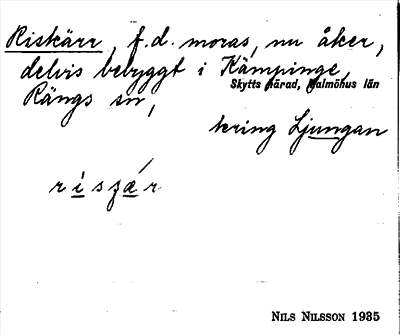 Riskärr, f.d. moras, nu åker,
delvis bebyggt i Kämpinge,
Skytts härad, Malmöhus län
Rängs sn,
kring Ljungan
risʒár
NILS NILSSON 1935